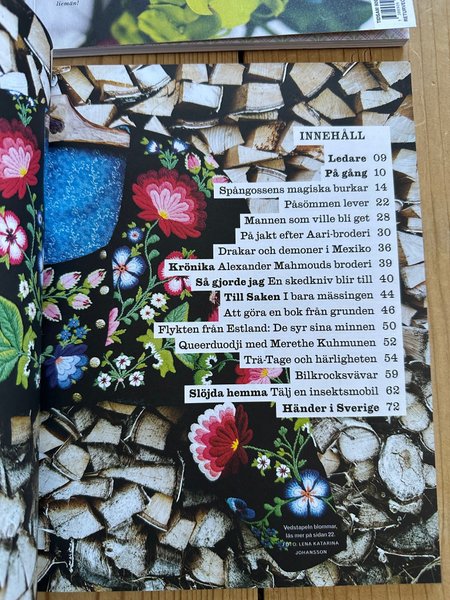 liemän!
INNEHÅLL
Ledare 09
På gång 10
Spångossens magiska burkar 14
Påsömmen lever 22
Mannen som ville bli get 28
På jakt efter Aari-broderi 30
Drakar och demoner i Mexiko 36
Krönika Alexander Mahmouds broderi 39
Så gjorde jag En skedkniv blir till 40
Till Saken I bara mässingen 44
Att göra en bok från grunden 46
Flykten från Estland: De syr sina minnen 50
Queerduodji med Merethe Kuhmunen 52
Trä-Tage och härligheten 54
Bilkrooksvävar 59
Slöjda hemma Tälj en insektsmobil 62
Händer i Sverige 72
Vedstapeln blommar,
läs mer på sidan 22.
FOTO: LENA KATARINA
JOHANSSON